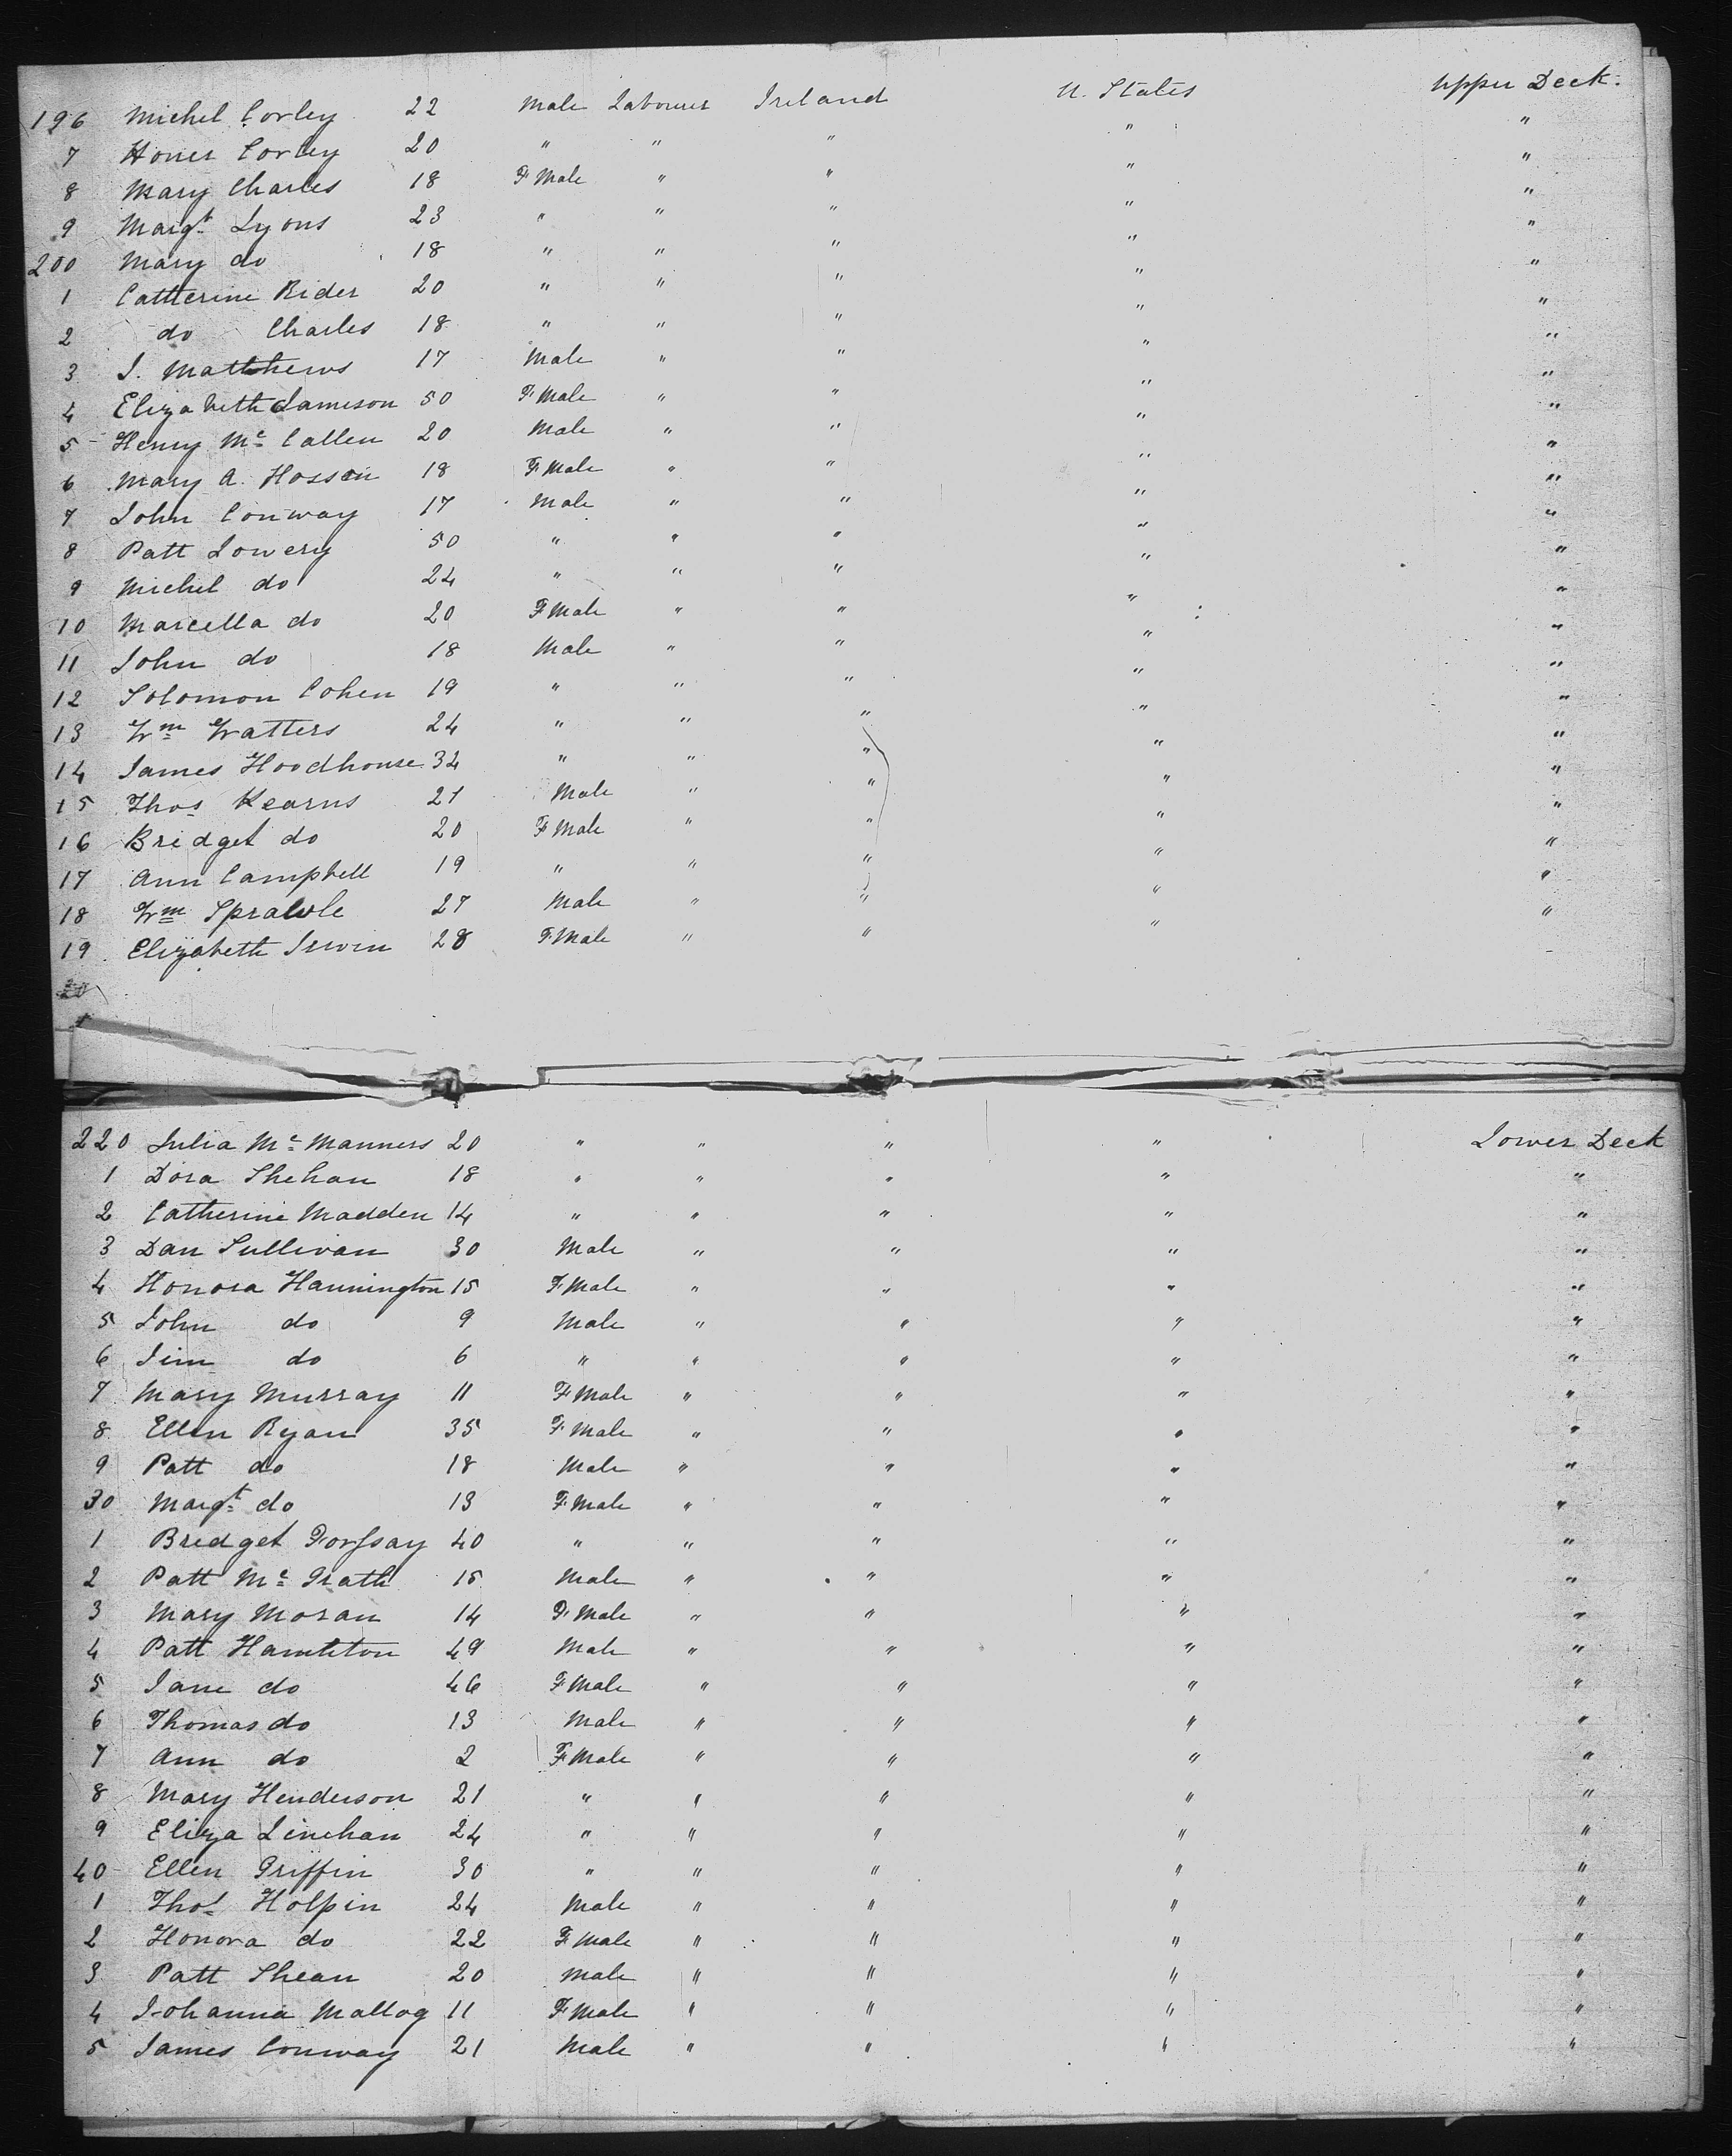 196 Michel Corley 22 Male Labourer Ireland U. States Upper Deck.
7 Honer Corley 20 " " " " "
8 Mary Charles 18 F Male " " " "
9 Margt Lyons 23 " " " " "
200 Mary do 18 " " " " "
1 Catherine Rider 20 " " " " "
2 do Charles 18 " " " " "
3 J. Matthews 17 Male " " " "
4 Elizabeth Jameson 50 F Male " " " "
5 Henry Mc Callen 20 Male " " " "
6 Mary A. Hossen 18 F Male " " " "
7 John Conway 17 Male " " " "
8 Patt Lowery 50 " " " " "
9 Michel do 24 " " " " "
10 Marcella do 20 F Male " " " "
11 John do 18 Male " " " "
12 Solomon Cohen 19 " " " " "
13 Wm Watters 24 " " " " "
14 James Hoodhouse 34 " " " " "
15 Thos Kearns 21 Male " " " "
16 Bridget do 20 F Male " " " "
17 Ann Campbell 19 " " " " "
18 Wm 27 Male " " " "
19 Elizabeth Irwin 28 F Male " " "
20
220 Julia Mc Manners 20 " " " " Lower Deck
1 Dora Shehan 18 " " " " "
2 Catherine Madden 14 " " " " "
3 Dan Sullivan 30 Male " " " "
4 Honora Hannington 15 F Male " " " "
5 John do 9 Male " " " "
6 Jim do 6 " " " " "
7 Mary Murray 11 F Male " " " "
8 Ellen Ryan 35 F Male " " " "
9 Patt do 18 Male " " " "
30 Margt do 13 F Male " " " "
1 Bridget 40 " " " " "
2 Patt Mc Grath 15 Male " " " "
3 Mary Moran 14 F Male " " " "
4 Patt Hamleton 49 Male " " " "
5 Jane do 46 F Male " " " "
6 Thomas do 13 Male " " " "
7 Ann do 2 F Male " " " "
8 Mary Henderson 21 " " " " "
9 Eliza Linehan 24 " " " " "
40 Ellen Griffin 30 " " " " "
1 Thos Holpin 24 Male " " " "
2 Honora do 22 F Male " " " "
3 Patt Shean 20 Male " " " "
4 Johanna Mallog 11 F Male " " " "
5 James Conway 21 Male " " " "